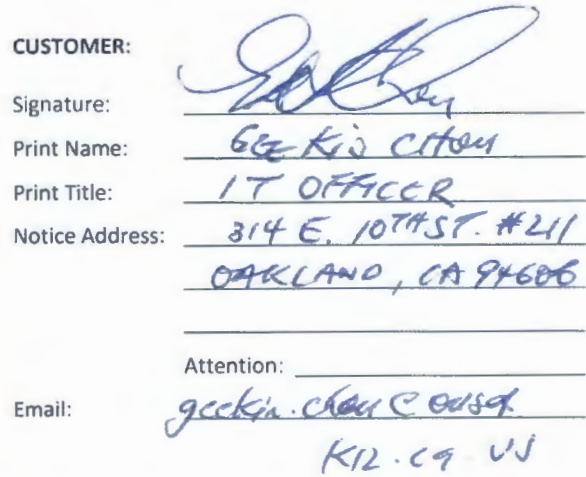 CUSTOMER:
Signature:
Print Name: Gee Kin CHOU
Print Title: IT OFFICER
Notice Address: 314 E. 10TH ST. #211
OAKLAND, CA 94606
Attention:
Email: geekin.chou@ousd.
K12.ca.us